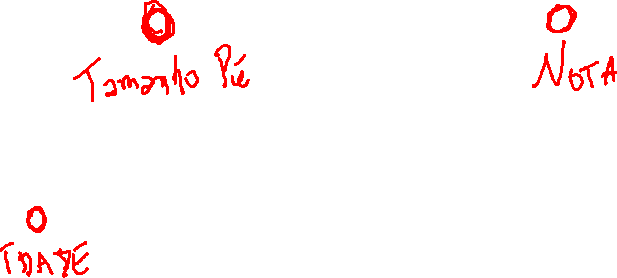 Tamanho Pié
NOTA
IDADE